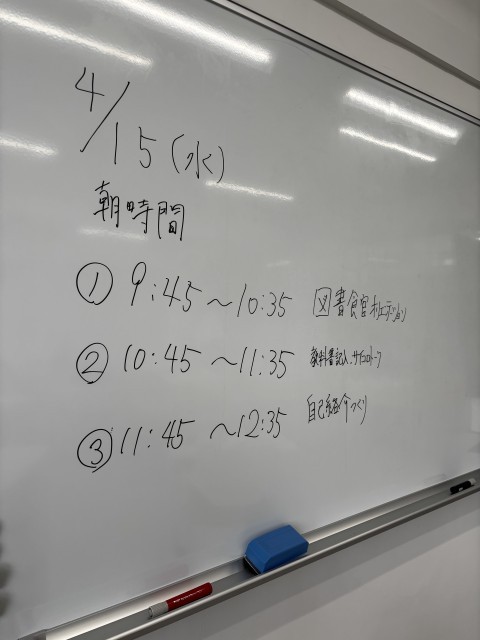 4/15(水)
朝時間
① 9:45〜10:35 図書館オリエンテーション
② 10:45〜11:35 教科書記入、サイコロトーク
③ 11:45〜12:35 自己紹介づくり